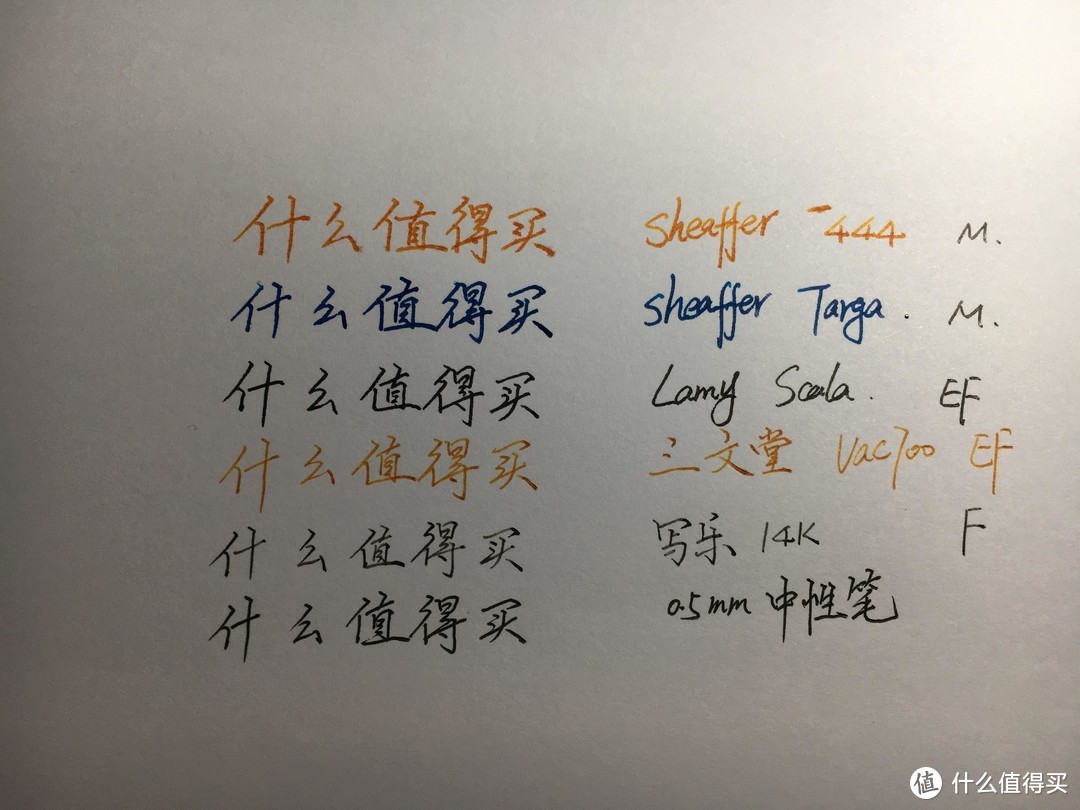 什么值得买 sheaffer -444 M.
什么值得买 sheaffer Targa. M.
什么值得买 Lamy Scala. EF
什么值得买 三文堂 Vac700 EF
什么值得买 写乐 14K F
什么值得买 0.5mm 中性笔
值 什么值得买